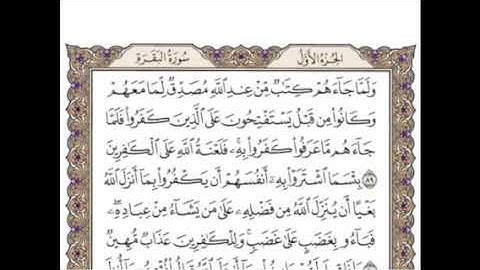 الجزء الأول
سورة البقرة
وَلَمَّا جَاءَهُمْ كِتَابٌ مِّنْ عِندِ اللَّهِ مُصَدِّقٌ لِّمَا مَعَهُمْ
وَكَانُوا مِن قَبْلُ يَسْتَفْتِحُونَ عَلَى الَّذِينَ كَفَرُوا فَلَمَّا
جَاءَهُم مَّا عَرَفُوا كَفَرُوا بِهِ فَلَعْنَةُ اللَّهِ عَلَى الْكَافِرِينَ
٨٩ بِئْسَمَا اشْتَرَوْا بِهِ أَنفُسَهُمْ أَن يَكْفُرُوا بِمَا أَنزَلَ اللَّهُ
بَغْيًا أَن يُنَزِّلَ اللَّهُ مِن فَضْلِهِ عَلَىٰ مَن يَشَاءُ مِنْ عِبَادِهِ
فَبَاءُو بِغَضَبٍ عَلَىٰ غَضَبٍ وَلِلْكَافِرِينَ عَذَابٌ مُّهِينٌ